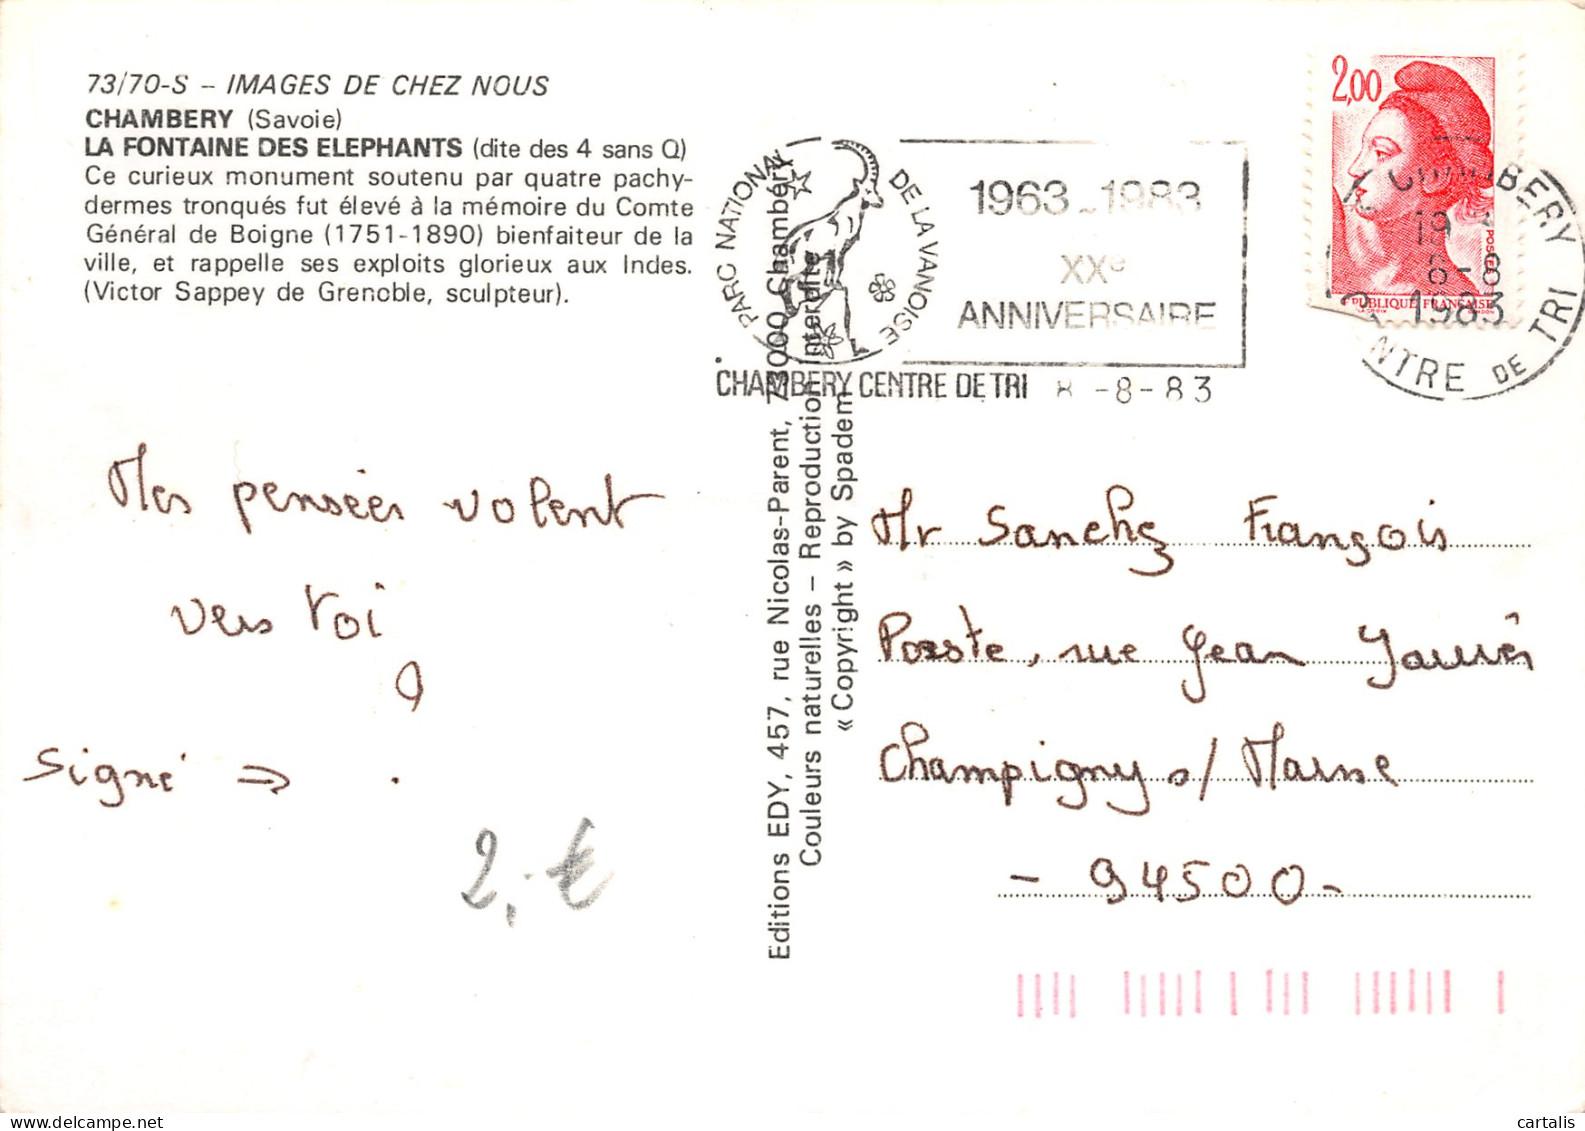 73/70-S – IMAGES DE CHEZ NOUS
CHAMBERY (Savoie)
LA FONTAINE DES ELEPHANTS (dite des 4 sans Q)
Ce curieux monument soutenu par quatre pachy-
dermes tronqués fut élevé à la mémoire du Comte
Général de Boigne (1751-1890) bienfaiteur de la
ville, et rappelle ses exploits glorieux aux Indes.
(Victor Sappey de Grenoble, sculpteur).
PARC NATIONAL DE LA VANOISE
1963-1983
XXe
ANNIVERSAIRE
CHAMBERY CENTRE DE TRI 8-8-83
2,00
POSTES
REPUBLIQUE FRANÇAISE
CHAMBERY
8-8
1983
CENTRE DE TRI
Mes pensées volent
vers toi
Signé ⇒ ?
2,-€
Editions EDY, 457, rue Nicolas-Parent, 73000 Chambéry
Couleurs naturelles – Reproduction interdite
« Copyright » by Spadem
Mr Sanchez François
Poste, rue Jean Jaurès
Champigny s/ Marne
- 94500 -
cartalis